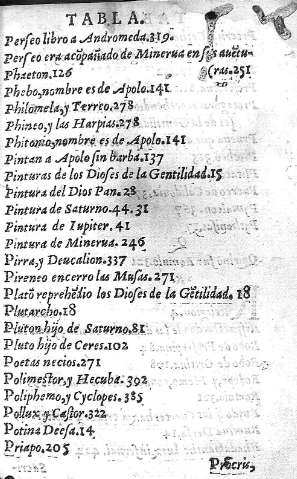 TABLA.
Perseo libro a Andromeda.319.
Perseo era acõpañado de Minerua en sus auẽtu-
Phaeton.126 (ras.251
Phebo,nombre es de Apolo.141
Philomela,y Terreo.278
Phineo,y las Harpias.278
Phitomo,nombre es de Apolo.141
Pintan a Apolo sin barba.137
Pinturas de los Dioses de la Gentilidad.15
Pintura del Dios Pan.28
Pintura de Saturno.44.31
Pintura de Iupiter.41
Pintura de Minerua.246
Pirra,y Deucalion.337
Pireneo encerro las Musas.271
Platõ reprehẽdio los Dioses de la Gẽtilidad.18
Plutarcho.18
Pluton hijo de Saturno.81
Pluto hijo de Ceres.102
Poetas necios.271
Polimestor,y Hecuba.392
Poliphemo,y Cyclopes.385
Pollux y Castor.322
Potina Deesa.14
Priapo.205
Procris,